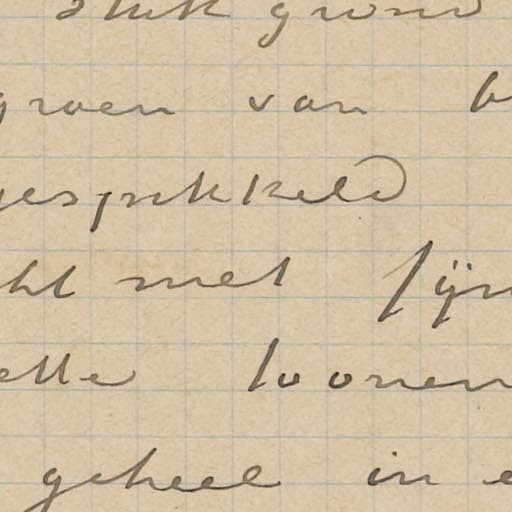 stuk grond
groen van b
gespikkeld
ht met fijn
ette toonen
geheel in e